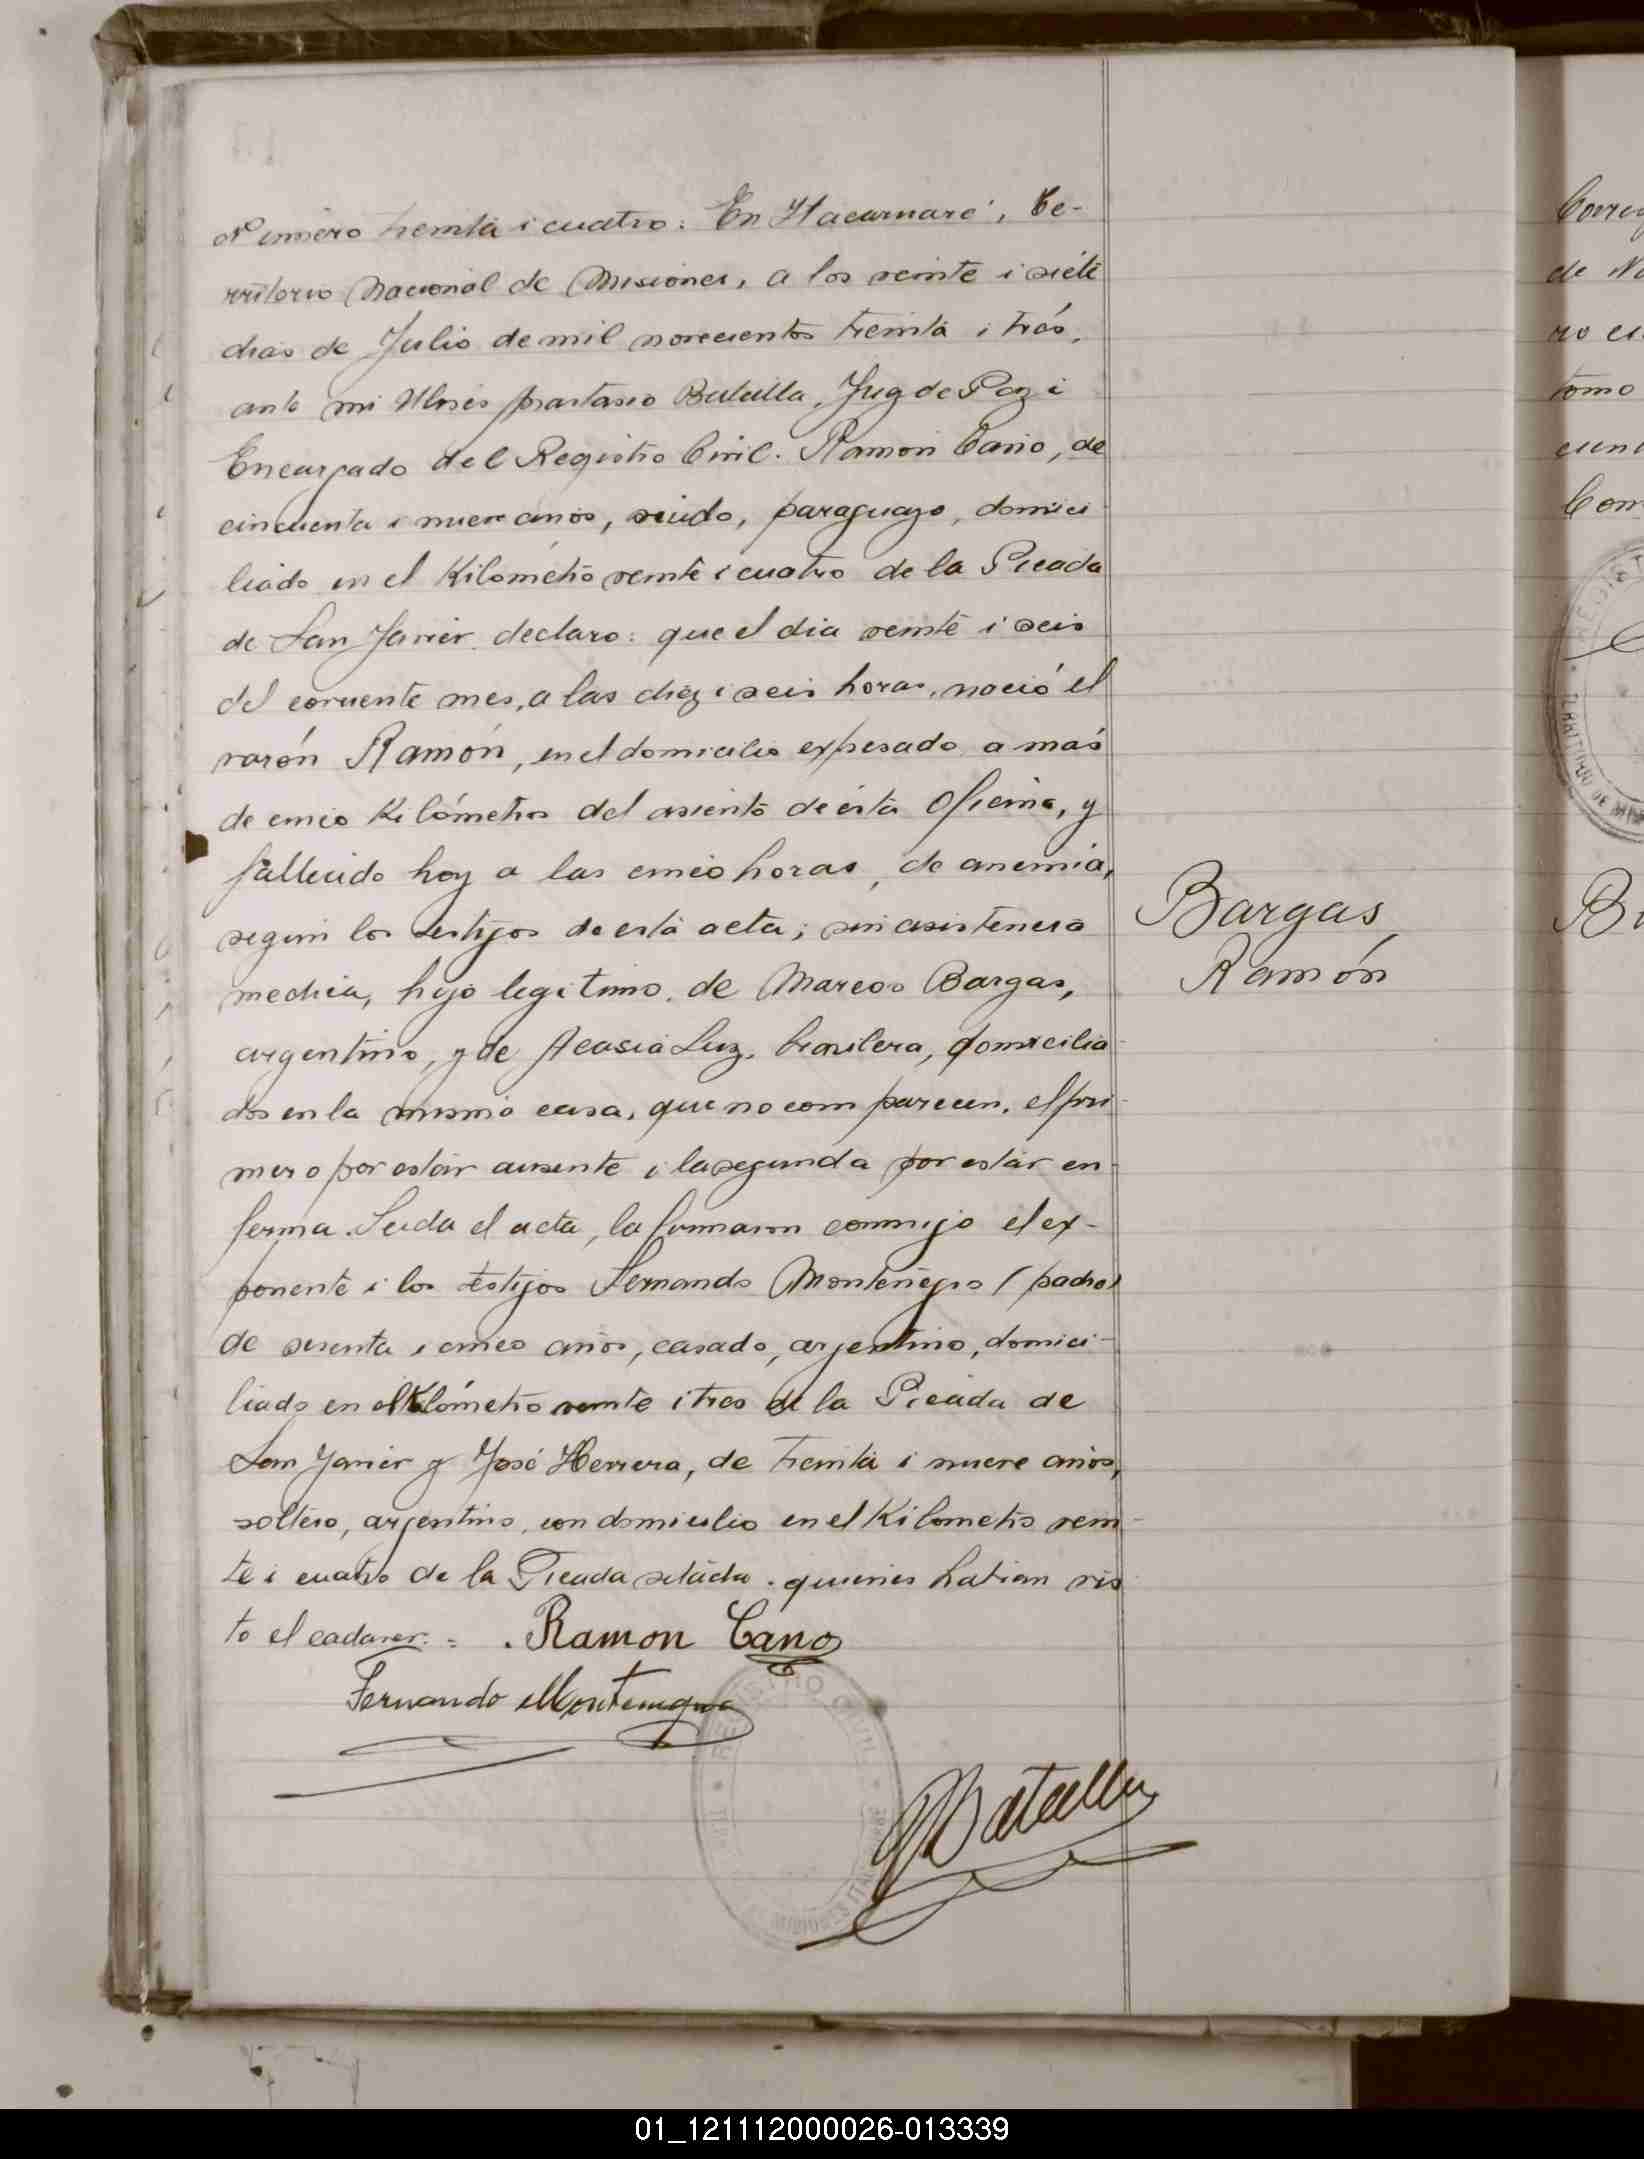 Número treinta i cuatro: En Itacaruaré, Te-
rritorio Nacional de Misiones, a los veinte i siete
dias de Julio de mil novecientos treinta i trés,
ante mi Batalla, Juez de Paz i
Encargado del Registro Civil. Ramon Cano, de
cincuenta i nueve años, viudo, paraguayo, domici
liado en el Kilómetro veinte i cuatro de la Picada
de San Javier declaro: que el dia veinte i seis
del corriente mes, a las diez i seis horas, nació el
varón Ramón, en el domicilio expesado a más
de cinco Kilómetros del asiento de ésta Oficina, y
fallecido hoy a las cinco horas, de anemia,
segun los testigos de esta acta; sin asistencia
medica, hijo legitimo de Marcos Bargas,
argentino, y de Acasia Luz, brasilera, domicilia-
dos en la misma casa, que no comparecen, el pri-
mero por estár ausente i la segunda por estár en-
ferma. Leida el acta, la firmaron conmigo el ex-
ponente i los testigos Fernando Montenegro (padre)
de sesenta i cinco años, casado, argentino, domici-
liado en el Kilómetro veinte i tres de la Picada de
San Javier y José Herrera, de treinta i nueve años,
soltero, argentino, con domicilio en el Kilometro vein-
te i cuatro de la Picada citada. quienes habian vis
to el cadaver. = . Ramon Cano
Fernando Montenegro
Batalla
Bargas,
Ramón
REGISTRO CIVIL
01_121112000026-013339